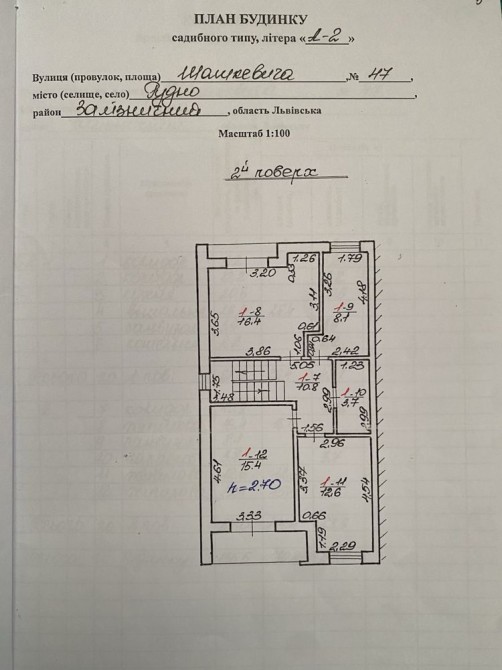 ПЛАН БУДИНКУ
садибного типу, літера «1-2»
Вулиця (провулок, площа) Шашкевича, № 47,
місто (селище, село) Рудно,
район Залізничний, область Львівська
Масштаб 1:100
2й поверх
1.26
1.79
3.20
0.33
3.26
4.18
3.11
1-8
16.4
1-9
8.1
3.65
0.61
0.64
1.06
3.86
5.05
2.42
1-7
10.8
1.23
1-10
3.7
1.75
3.48
2.90
2.99
1.56
2.96
1-12
15.4
4.61
h=2.70
3.37
1-11
12.6
4.54
3.33
0.66
1.19
2.29